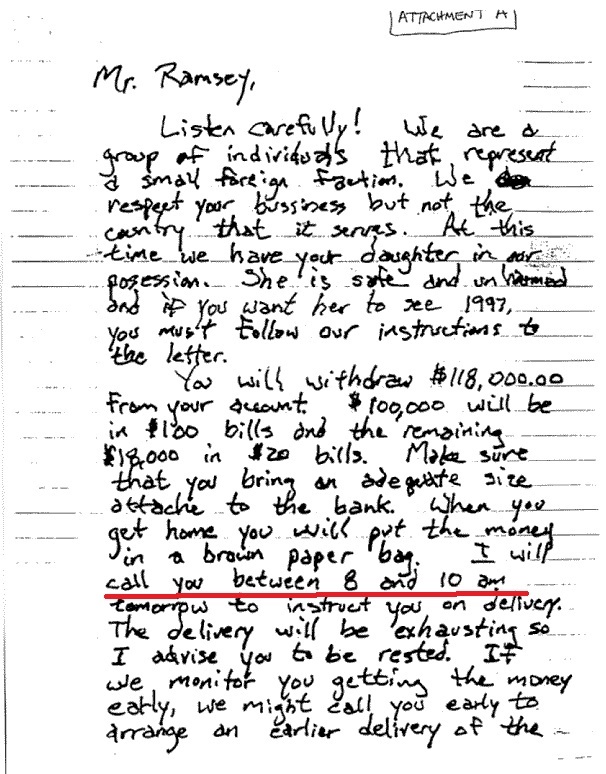 ATTACHMENT A
Mr. Ramsey,
Listen carefully! We are a
group of individuals that represent
a small foreign faction. We
respect your bussiness but not the
country that it serves. At this
time we have your daughter in our
posession. She is safe and unharmed
and if you want her to see 1997,
you must follow our instructions to
the letter.
You will withdraw $118,000.00
from your account. $100,000 will be
in $100 bills and the remaining
$18,000 in $20 bills. Make sure
that you bring an adequate size
attache to the bank. When you
get home you will put the money
in a brown paper bag. I will
call you between 8 and 10 am
tomorrow to instruct you on delivery.
The delivery will be exhausting so
I advise you to be rested. If
we monitor you getting the money
early, we might call you early to
arrange an earlier delivery of the